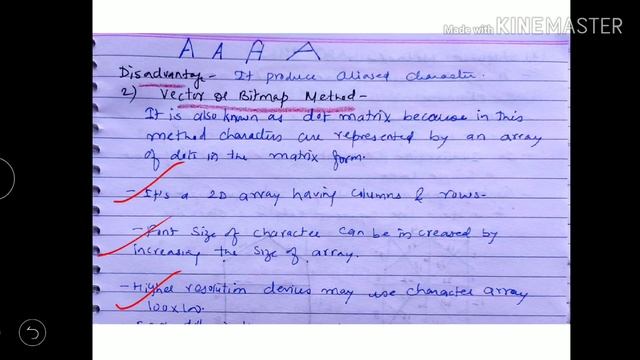 Made with KINEMASTER
A A A A
Disadvantage - It produce aliased character.
2) Vector or Bitmap Method -
It is also known as dot matrix because in this
method characters are represented by an array
of dots in the matrix form.
- It's a 2D array having columns & rows -
- Font size of character can be increased by
increasing the size of array.
- Higher resolution devices may use character array
100x100.